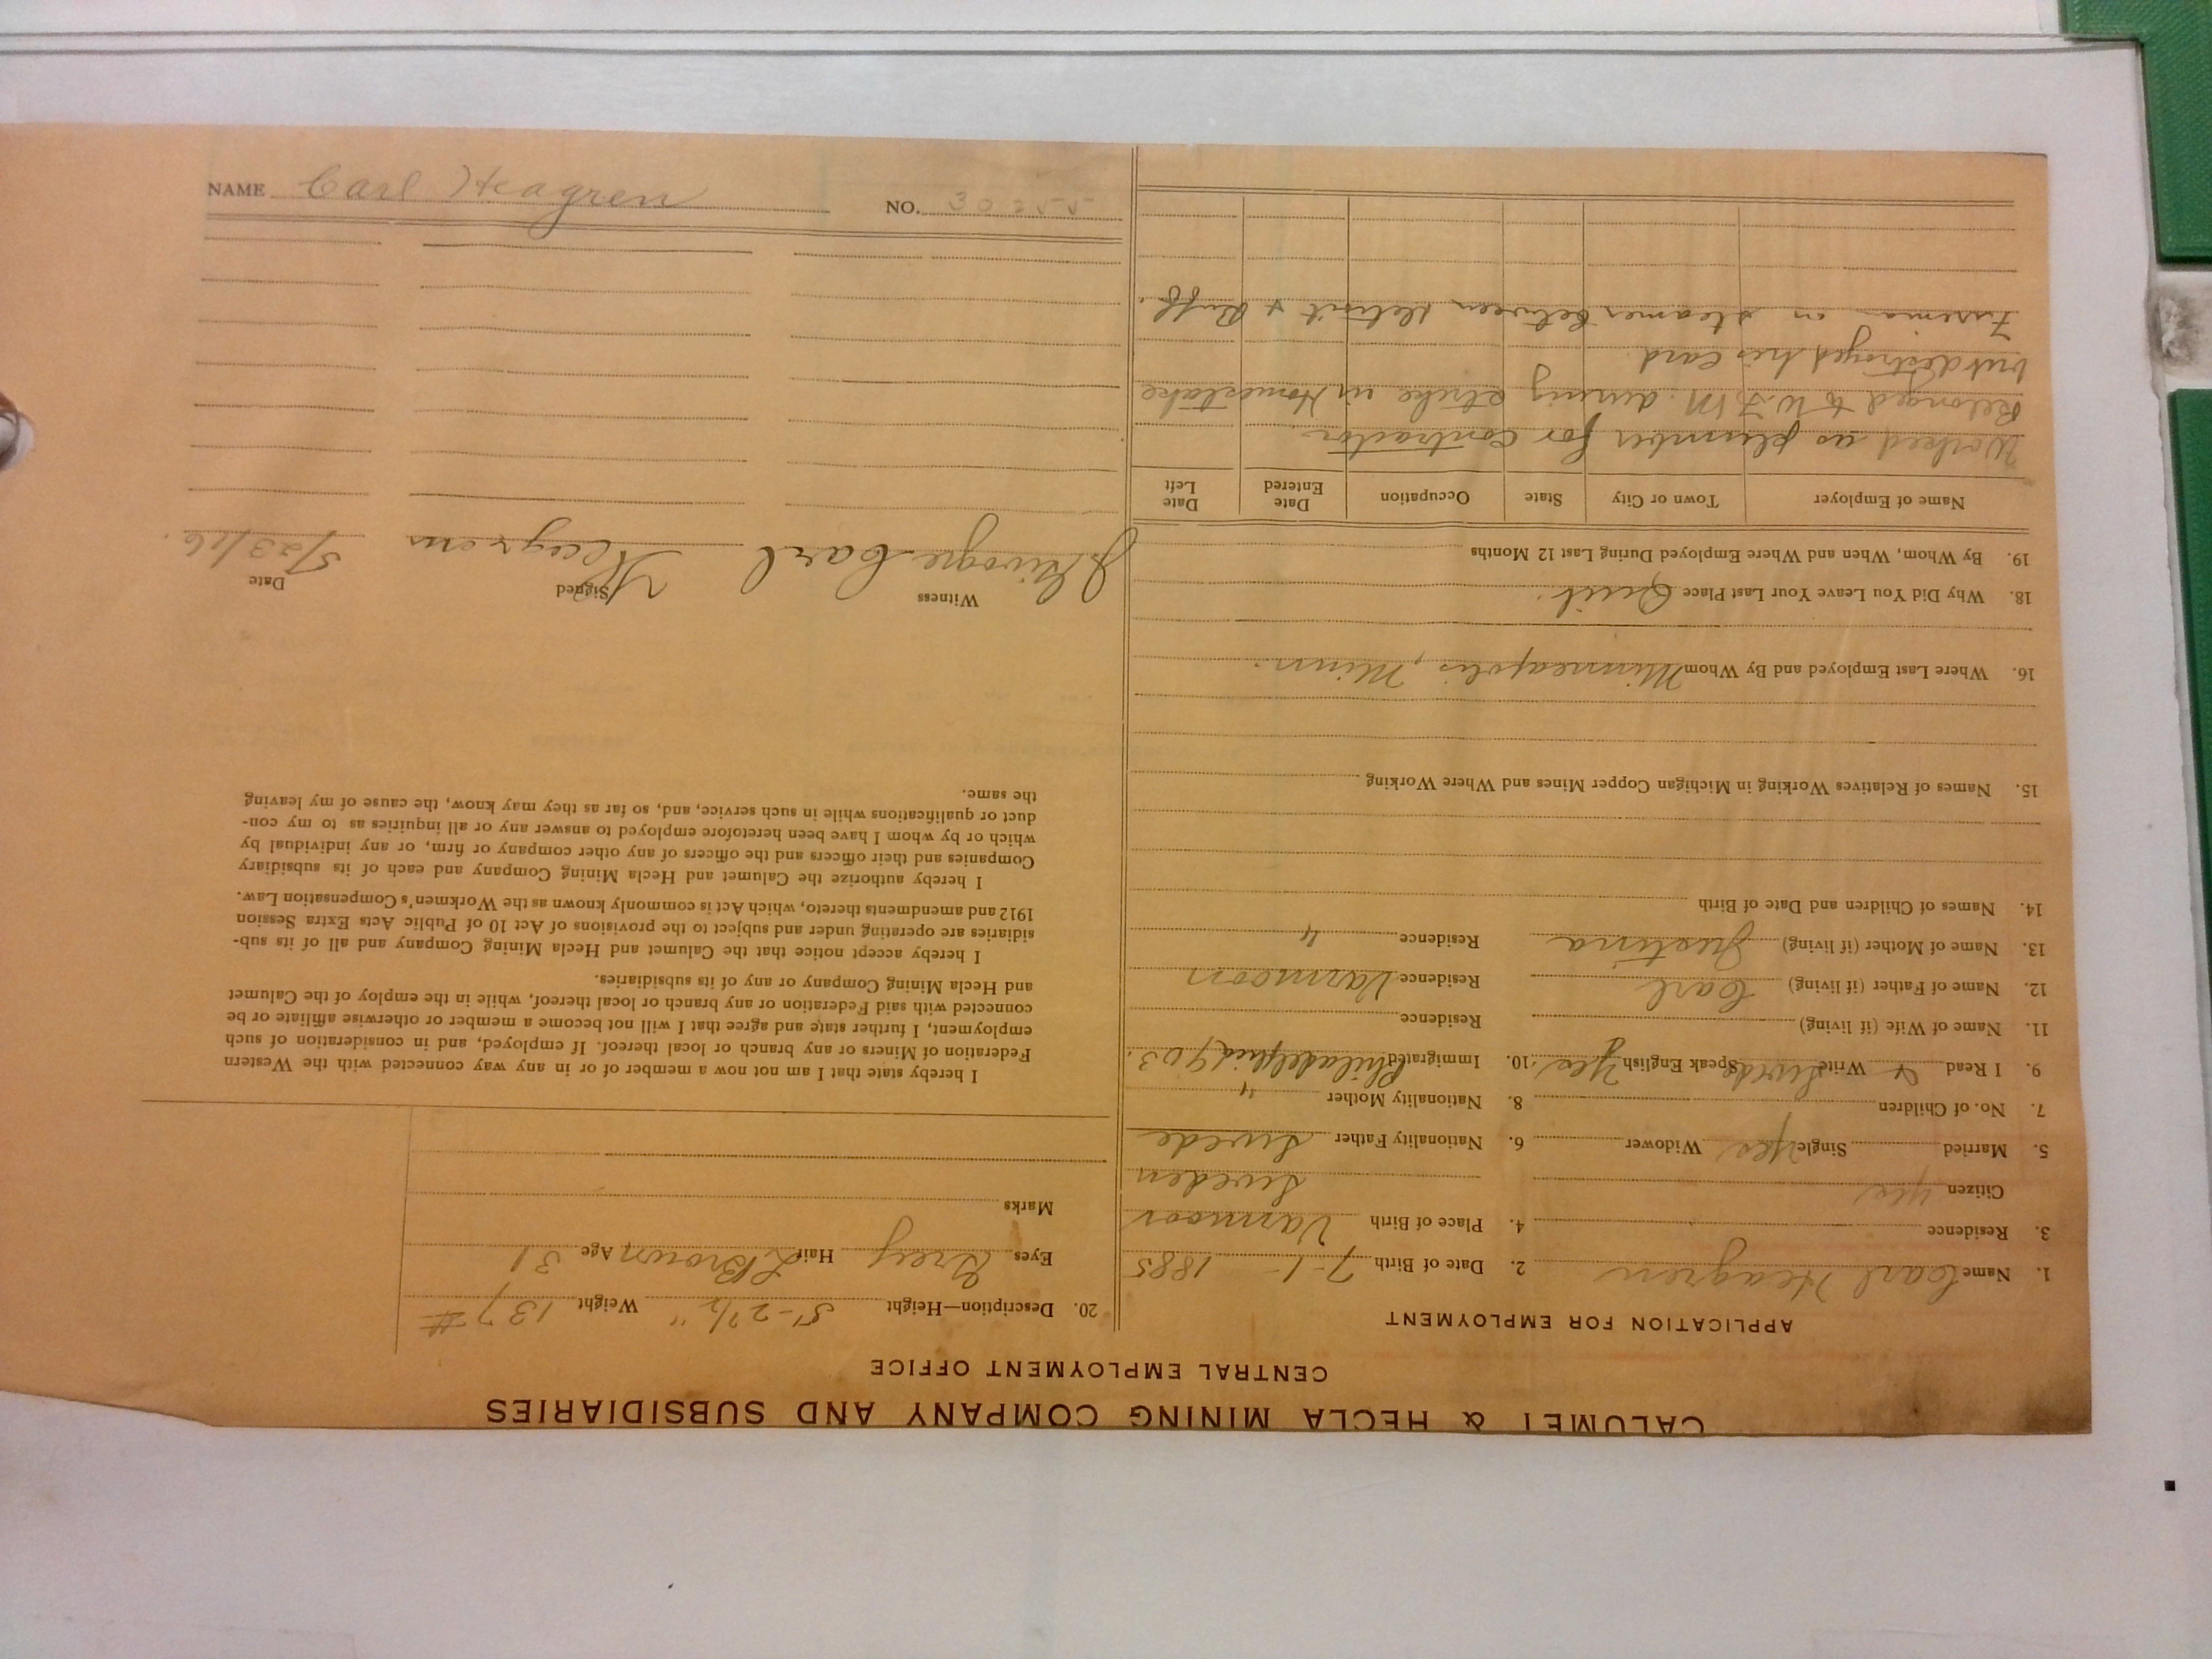 CALUMET & HECLA MINING COMPANY AND SUBSIDIARIES
CENTRAL EMPLOYMENT OFFICE
APPLICATION FOR EMPLOYMENT
1. Name Carl Heagren 2. Date of Birth 7-1-1885
3. Residence 4. Place of Birth Varmoor
Citizen yes Sweden
5. Married Single Yes Widower 6. Nationality Father Swede
7. No. of Children 8. Nationality Mother "
9. I Read & Write Swede Speak English Yes. 10. Immigrated Philadelphia 1903.
11. Name of Wife (if living) Residence
12. Name of Father (if living) Carl Residence Varmoor
13. Name of Mother (if living) Justina Residence "
14. Names of Children and Date of Birth
15. Names of Relatives Working in Michigan Copper Mines and Where Working
16. Where Last Employed and By Whom Minneapolis, Minn.
18. Why Did You Leave Your Last Place Quit.
19. By Whom, When and Where Employed During Last 12 Months
Name of Employer Town or City State Occupation Date Entered Date Left
Worked as plumber for contractor
Belonged to W.F.M. during strike in Homestake
but destroyed his card
Fireman on steamer between Detroit & Buff.
20. Description—Height 5'-2 1/2" Weight 137#
Eyes Grey Hair L Brown Age 31
Marks
I hereby state that I am not now a member of or in any way connected with the Western
Federation of Miners or any branch or local thereof. If employed, and in consideration of such
employment, I further state and agree that I will not become a member or otherwise affiliate or be
connected with said Federation or any branch or local thereof, while in the employ of the Calumet
and Hecla Mining Company or any of its subsidiaries.
I hereby accept notice that the Calumet and Hecla Mining Company and all of its sub-
sidiaries are operating under and subject to the provisions of Act 10 of Public Acts Extra Session
1912 and amendments thereto, which Act is commonly known as the Workmen's Compensation Law.
I hereby authorize the Calumet and Hecla Mining Company and each of its subsidiary
Companies and their officers and the officers of any other company or firm, or any individual by
which or by whom I have been heretofore employed to answer any or all inquiries as to my con-
duct or qualifications while in such service, and, so far as they may know, the cause of my leaving
the same.
Witness Signed Date
Carl Heegren 5/23/16.
NAME Carl Heagren NO. 30255